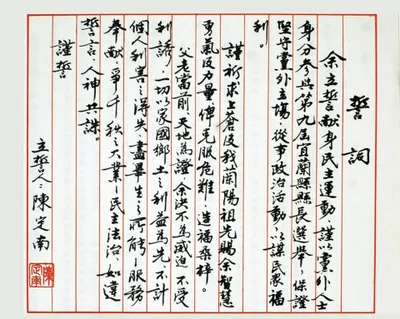 誓詞
余立誓獻身民主運動謹以黨外人士
身分參與第九屆宜蘭縣縣長選舉、保證
堅守黨外立場、從事政治活動、以謀民眾福
利。
謹祈求上蒼及我蘭陽祖先賜余智慧
勇氣及力量、俾克服危難、造福桑梓。
父老當前、天地為證、余決不為威迫、不受
利誘、一切以家國鄉土之利益為先、不計
個人利害之得失、盡畢生之所能、服務
奉獻、爭千秋之大業、民主法治、如違
誓言、人神共誅。
謹誓
立誓人：陳定南
陳定南